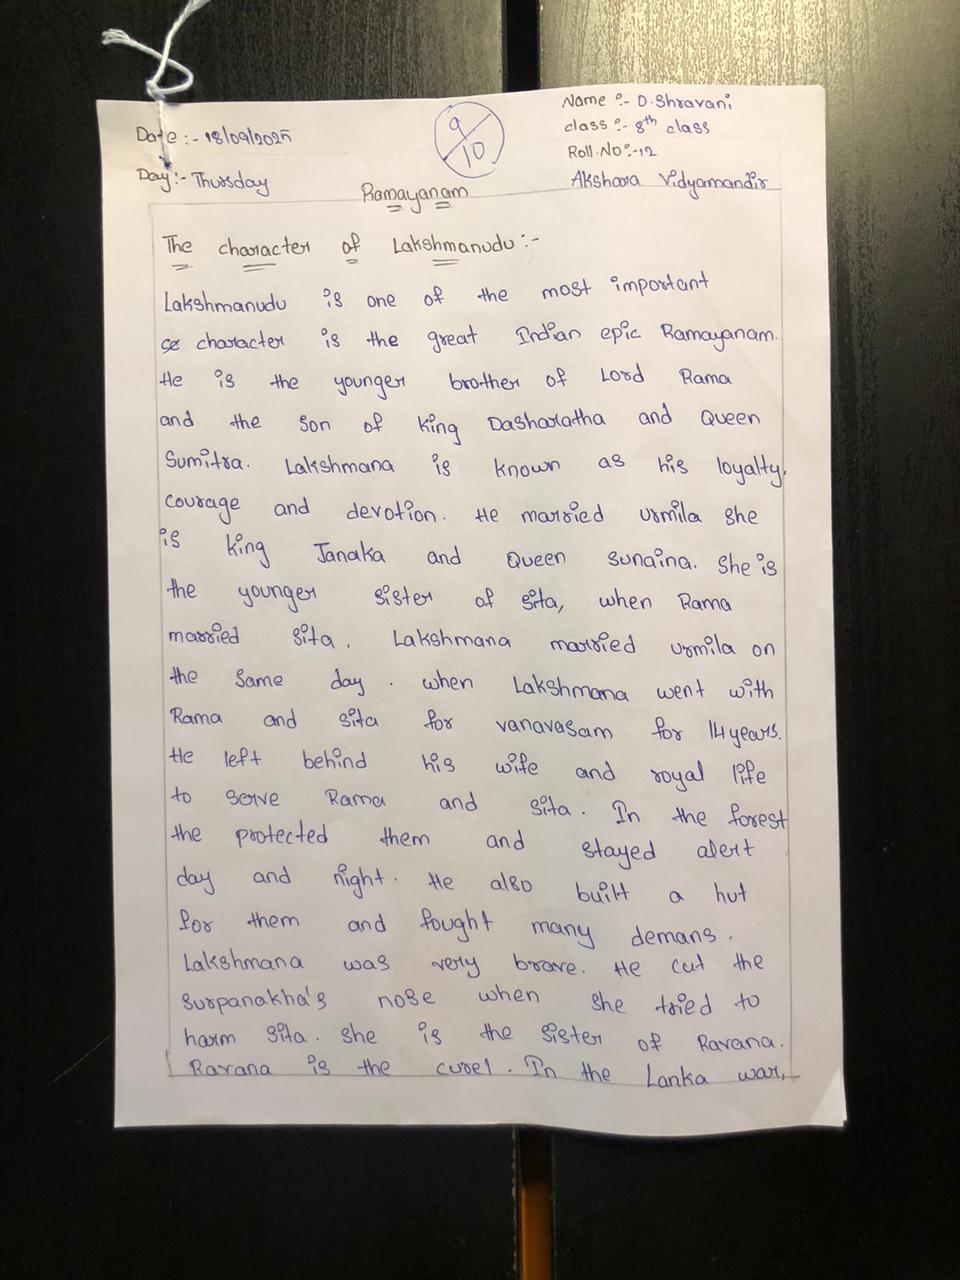 Date :- 18/09/2025
Day :- Thursday
9/10
Name :- D. Shravani
class :- 8th class
Roll.No :- 12
Akshara Vidyamandir
Ramayanam
The character of Lakshmanudu :-
Lakshmanudu is one of the most important
character is the great Indian epic Ramayanam.
He is the younger brother of Lord Rama
and the son of king Dasharatha and Queen
Sumitra. Lakshmana is known as his loyalty,
courage and devotion. He married urmila she
is king Janaka and Queen sunaina. She is
the younger sister of sita, when Rama
married sita. Lakshmana married urmila on
the same day. when Lakshmana went with
Rama and sita for vanavasam for 14 years.
He left behind his wife and royal life
to serve Rama and sita. In the forest
the protected them and stayed alert
day and night. He also built a hut
for them and fought many demans.
Lakshmana was very brave. He cut the
surpanakha's nose when she tried to
harm sita. she is the sister of Ravana.
Ravana is the curel. In the Lanka war,